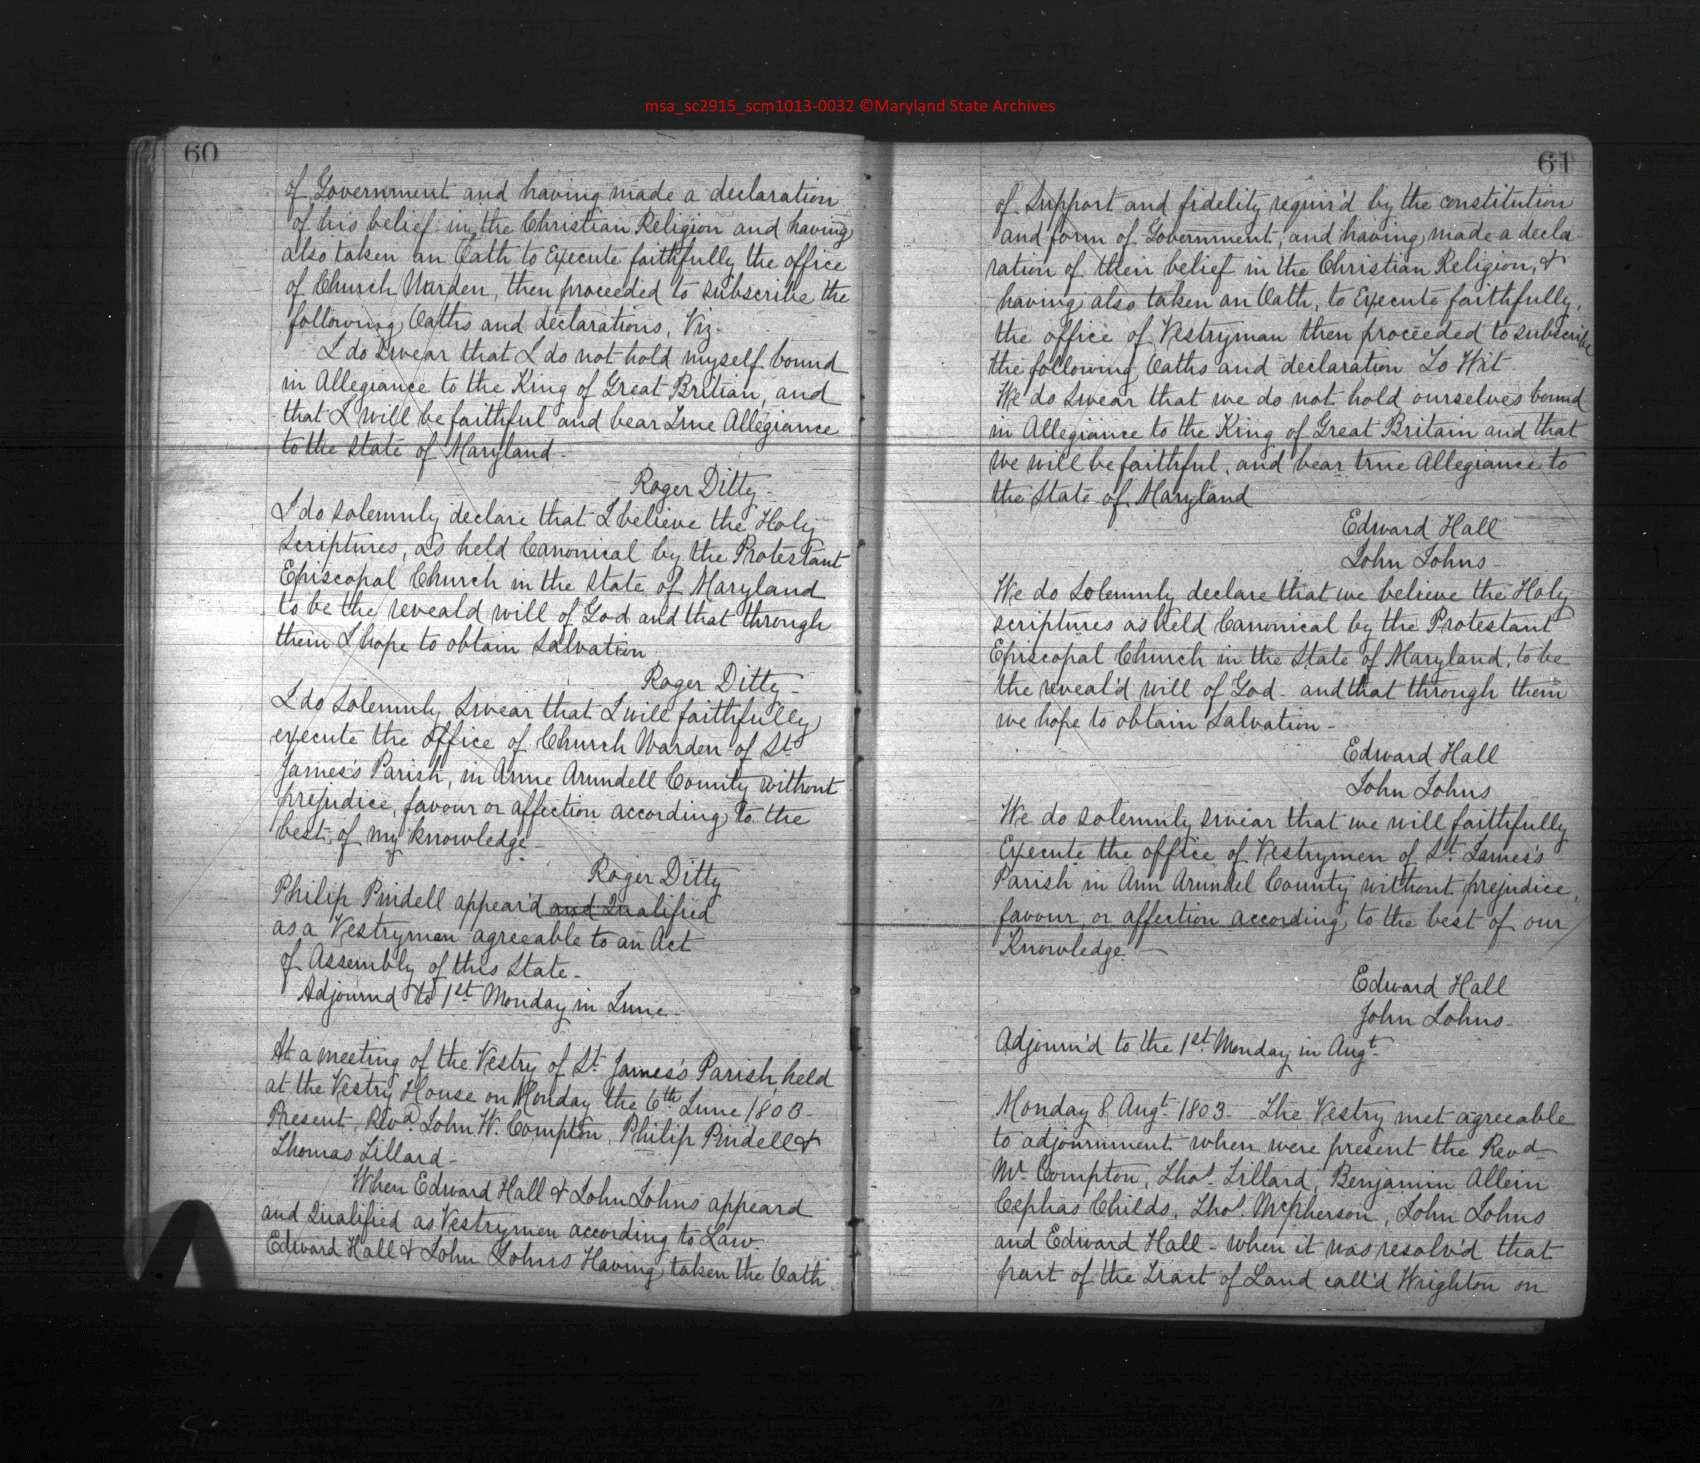 msa_sc2915_scm1013-0032 ©Maryland State Archives
60
of Government and having made a declaration
of his belief in the Christian Religion and having
also taken an Oath to Execute faithfully the office
of Church Warden, then proceeded to subscribe the
following Oaths and declarations, Viz-
I do swear that I do not hold myself bound
in Allegiance to the King of Great Britian, and
that I will be faithful and bear True Allegiance
to the State of Maryland-
Roger Ditty-
I do solemnly declare that I believe the Holy
Scriptures, as held Canonical by the Protestant
Episcopal Church in the State of Maryland
to be the reveald will of God and that through
them I hope to obtain Salvation
Roger Ditty-
I do solemnly Swear that I will faithfully
execute the office of Church Warden of St.
James's Parish, in Anne Arundell County without
prejudice, favour or affection according to the
best of my knowledge-
Roger Ditty
Philip Pindell appear'd and Qualified
as a Vestryman agreeable to an Act
of Assembly of this State-
Adjournd to 1st Monday in June-
At a meeting of the Vestry of St. James's Parish, held
at the Vestry House on Monday the 6th June 1803-
Present, Revd John W. Compton, Philip Pindell &
Thomas Tillard-
When Edward Hall & John Johns appeard
and Qualified as Vestrymen according to Law.
Edward Hall & John Johns Having taken the Oath
61
of Support and fidelity requir'd by the constitution
and form of Government, and having made a decla-
ration of their belief in the Christian Religion, &
having also taken an Oath, to Execute faithfully,
the office of Vestryman then proceeded to subscribe
the following Oaths and declaration To Wit
We do Swear that we do not hold ourselves bound
in Allegiance to the King of Great Britain and that
we will be faithful, and bear true Allegiance to
the State of Maryland
Edward Hall
John Johns-
We do Solemnly declare that we believe the Holy
scriptures as held Canonical by the Protestant
Episcopal Church in the State of Maryland, to be
the reveal'd will of God- and that through them
we hope to obtain Salvation-
Edward Hall
John Johns
We do solemnly swear that we will faithfully
Execute the office of Vestrymen of St. James's
Parish in Ann Arundel County without prejudice,
favour or affection according to the best of our
Knowledge.-
Edward Hall
John Johns-
Adjourn'd to the 1st Monday in Augt-
Monday 8 Augt 1803- The Vestry met agreeable
to adjournment when were present the Revd
Mr Compton, Thos. Tillard, Benjamin Allein
Cephas Childs, Thos. McPherson, John Johns
and Edward Hall- when it was resolv'd that
part of the Tract of Land call'd Wrighton on